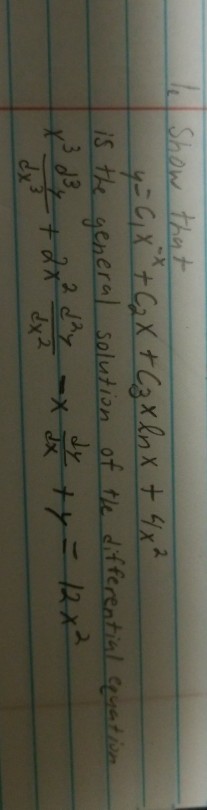 1. Show that
y = C₁x⁻ˣ + C₂x + C₃x ln x + 4x²
is the general solution of the differential equation
x³ d³y/dx³ + 2x² d²y/dx² - x dy/dx + y = 12x²